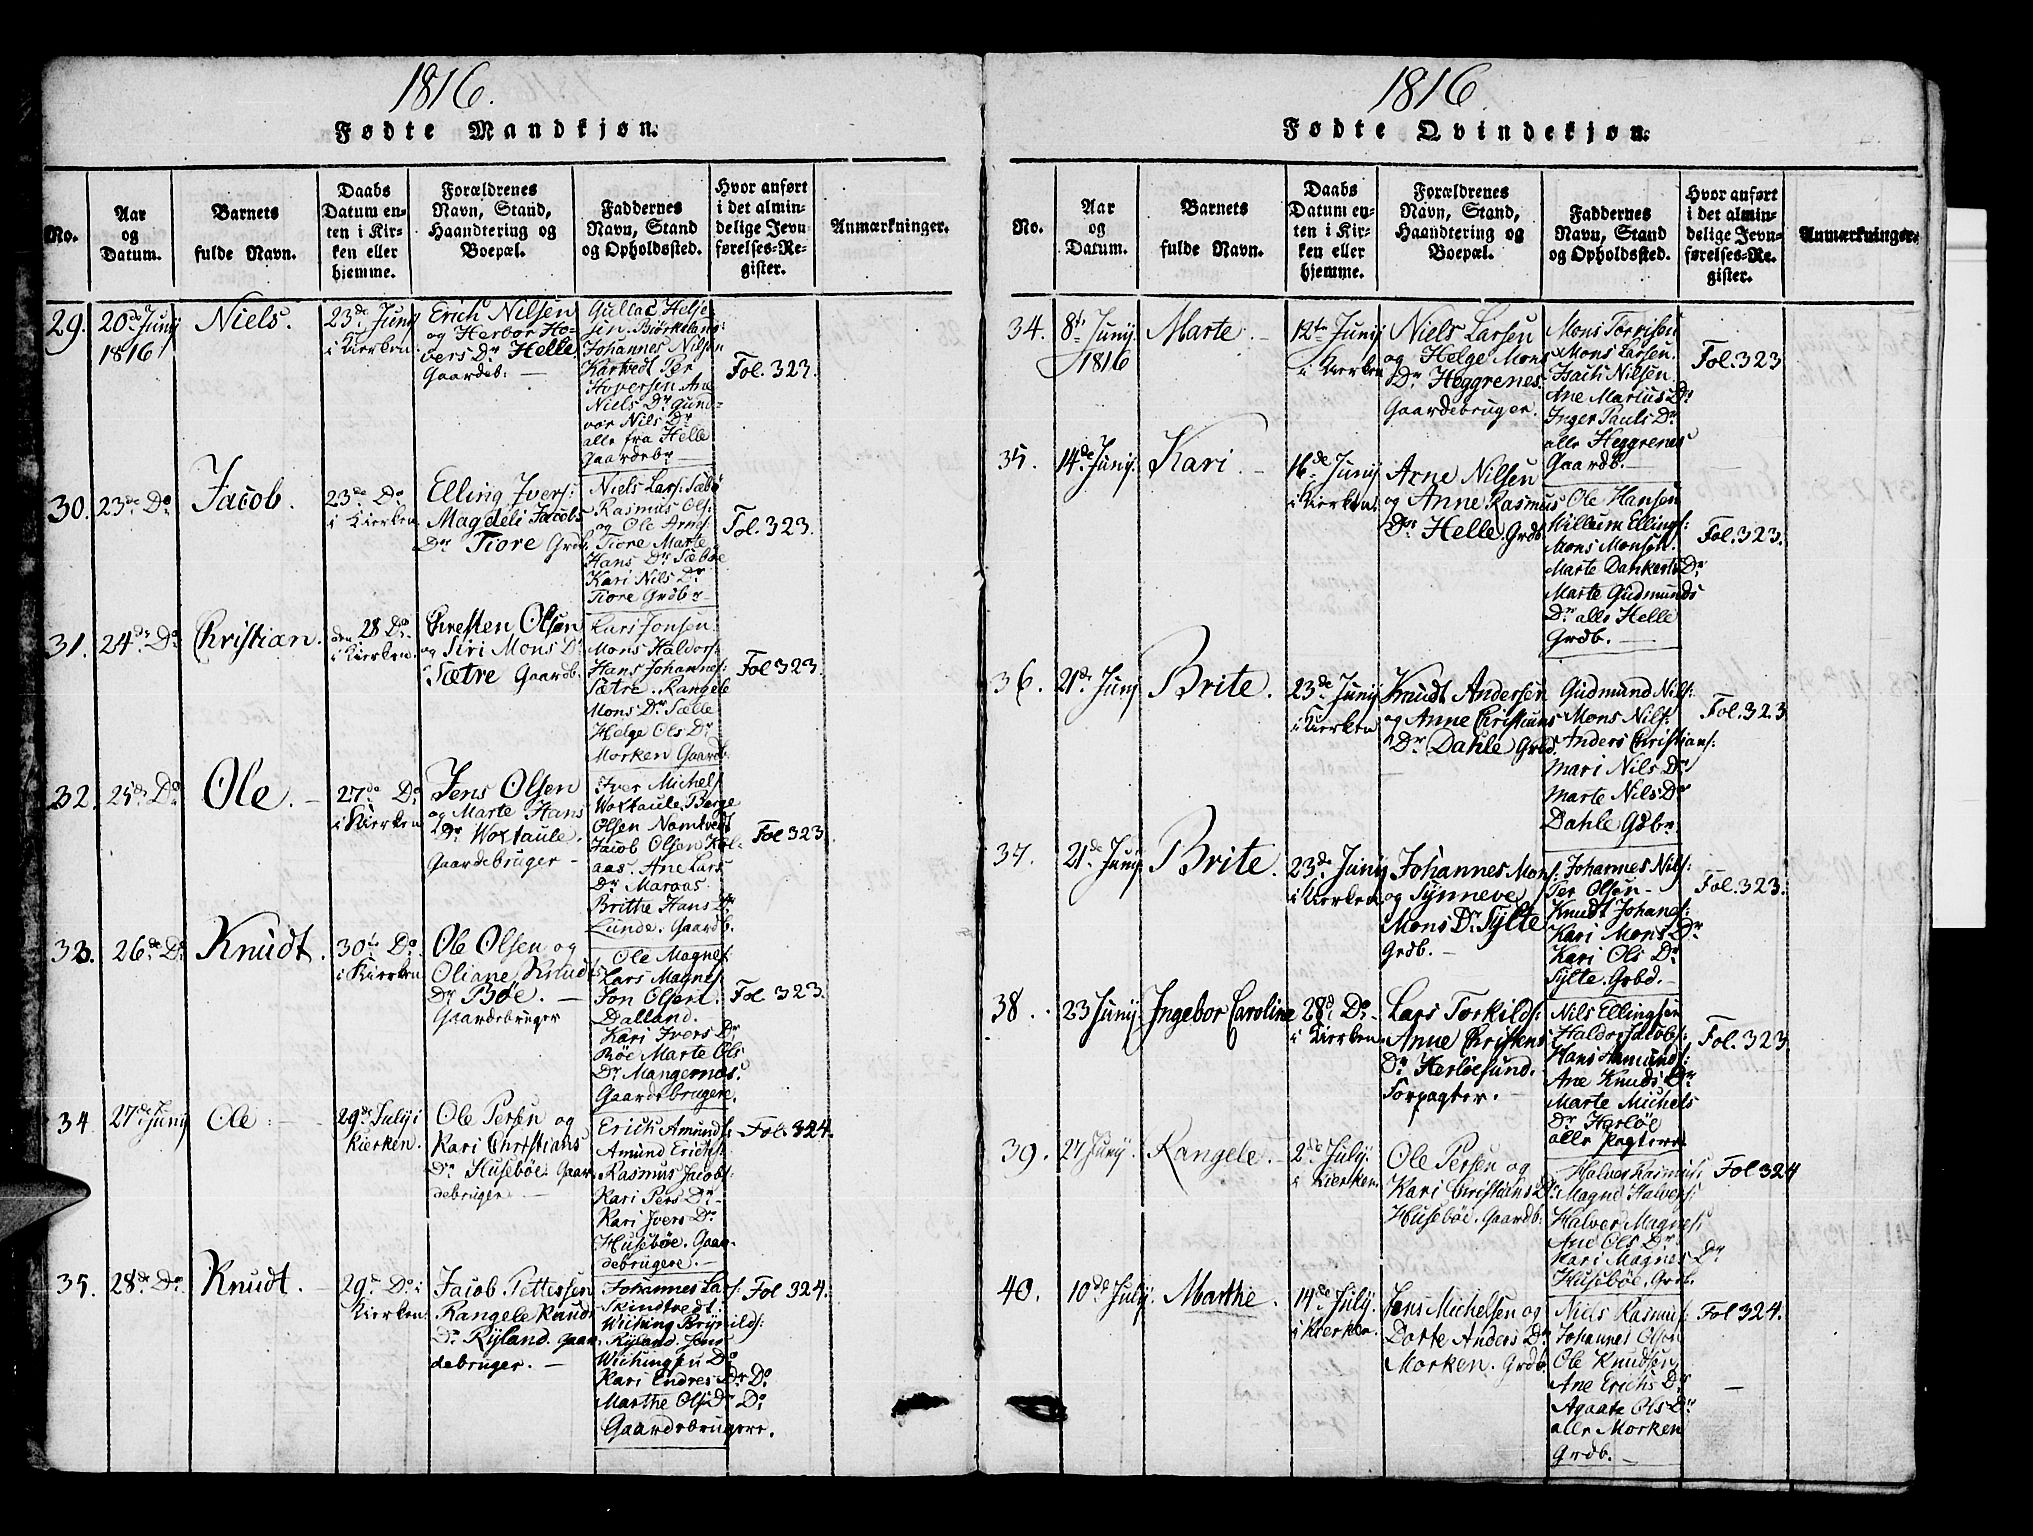 1816.
Fødte Mandkjøn.
No.
Aar
og
Datum.
Barnets
fulde Navn.
Daabs
Datum en-
ten i Kir-
ken eller
hjemme.
Forældrenes
Navn, Stand,
Haandtering og
Boepæl.
Faddernes
Navn, Stand
og Opholdssted.
Hvor anført
i det almin-
delige Jevn-
førelses-Re-
gister.
Anmærkninger.
29.
20de Juny
1816
Niels.
23de Juny
i Kierken
Erich Nilsen
og Herbor Ho-
vers Dr Helle
Gaardeb:
Johannes Nilsen
Kartvedt Per
Hoversen Ane
Niels Dr Gund-
vor Nils Dr
alle fra Helle
Gaardebr
Fol. 323.
30.
23de Do
Jacob.
23de Do
i Kierken
Elling Ivers:
Magdeli Jacobs
Dr Tiore Grdb.
Niels Lars: Sæbø
Rasmus Ols:
og Ole Arnes:
Tiore Marte
Hans Dr Sæbøe
Kari Nils Dr
Tiore Grdbr
Fol. 323.
31.
24de Do
Christian.
den 28 Do
i Kierken.
Christen Olsen
og Siri Mons Dr
Sætre Gaardb.
Lars Jonsen.
Mons Haldors:
Hans Johannes:
Sætre. Rangele
Mons Dr Sætre
Helge Ols Dr
Morken Gaardb.
Fol 323.
32.
25de Do
Ole.
27de Do
i Kierken
Jens Olsen
og Marte Hans
Dr Woxtaule.
Gaardebruger
Iver Michels:
Woxtaule. Børge
Olsen Namtvedt
Jacob Olsen Kol-
aas. Ane Lars
Dr Maraas.
Brithe Hans Dr
Lunde. Gaardb.
Fol 323.
33.
26de Do
Knudt.
30te Do
i Kierken
Ole Olsen og
Oliane Knudts
Dr Bøe.
Gaardebruger
Ole Magnes:
Lars Magnes:
Jon Olsen.
Dalland.
Kari Ivers Dr
Bøe Marte Ols
Dr Mangernæs.
Gaardebrugere.
Fol 323.
34.
27de Juny
Ole.
29de July i
Kierken.
Ole Persen og
Kari Christians
Dr Husebøe. Gaar-
debruger
Erich Amunds:
Amund Erichs:
Rasmus Jacobs:
Kari Pers Dr
Kari Ivers Dr
Husebøe. Gaar-
debrugere.
Fol. 324.
35.
28de Do
Knudt.
29de Do i
Kierken.
Jacob Pettersen
Rangele Knuds
Dr Ryland. Gaar-
debruger.
Johannes Lars:
Skindtvedt:
Wiching Brynilds:
Ryland. Jens
Wichingsen Do
Kari Endres Dr Do
Marthe Ols Dr Do
Gaardebrugere.
Fol 324.
1816
Fødte Qvindekjøn.
No.
Aar
og
Datum.
Barnets
fulde Navn.
Daabs
Datum en-
ten i Kir-
ken eller
hjemme.
Forældrenes
Navn, Stand,
Haandtering og
Boepæl.
Faddernes
Navn, Stand
og Opholdssted.
Hvor anført
i det almin-
delige Jevn-
førelses-Re-
gister.
Anmærkninger.
34.
8de Juny
1816
Marte.
12te Juny
i Kierken
Niels Larsen
og Helge Mons
Dr Heggrenes.
Gaardebruger.
Mons Larsen.
Isach Nilsen
Ane Marius Dr
Inger Pauls Dr
alle Heggrenes
Gaardb.
Fol. 323
35.
14de Juny.
Kari.
16de Juny
i Kierken.
Arne Nilsen
og Anne Rasmus
Dr Helle. Grdb.
Ole Hansen
Willum Ellings:
Mons Monsen.
Marte Dankerts Dr
Marte Gudmunds
Dr alle Helle
Grdb.
Fol. 323.
36.
21de Juny
Brite.
23de Juny
i Kierken
Knudt Andersen
og Anne Christians
Dr Dahle Grbd.
Gudmund Nils:
Mons Nils:
Anders Christians:
Mari Nils Dr
Marte Nils Dr
Dahle Gdbr
Fol. 323
37.
21de Juny
Brite.
23de Juny
i Kierken
Johannes Mons:
og Synneve
Mons Dr Sylte
Grdb.
Johannes Nils:
Per Olsen
Knudt Johanes:
Kari Mons Dr
Kari Ols Dr
Sylte. Grbd.
Fol. 323.
38.
23 Juny.
Ingebor Caroline
28de Do
i Kierken
Lars Torkilds:
Anne Christens
Dr Herløesund.
Forpagter.
Nils Ellingsen
Haldor Jacobs:
Hans Amunds:
Ane Knuds Dr
Marte Michels
Dr Herløe
alle pagtere.
Fol. 323.
39.
27 Juny.
Rangele.
2de July.
i Kierken.
Ole Persen og
Kari Christians Dr
Husebøe. Gaardb:
Halver Rasmus:
Magne Halvers:
Halver Magnes:
Ane Ols Dr
Kari Magnes Dr
Husebøe. Grdb.
Fol 324
40.
10de July.
Marthe.
14de July.
i Kierken.
Jens Michelsen og
Dorte Anders Dr
Morken. Grdb.
Niels Rasmus:
Johannes Olsen
Ole Knudsen
Ane Erichs Dr
Agaate Ols Dr
alle Morken
Grdb.
Fol 324.